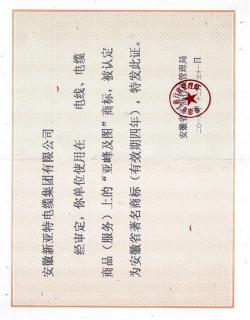 安徽新亚特电缆集团有限公司
经审定，你单位使用在 电线、电缆
商品（服务）上的“亚峰及图”商标，被认定
为安徽省著名商标（有效期四年），特发此证。
安徽省 管理局
二〇一 三十一日